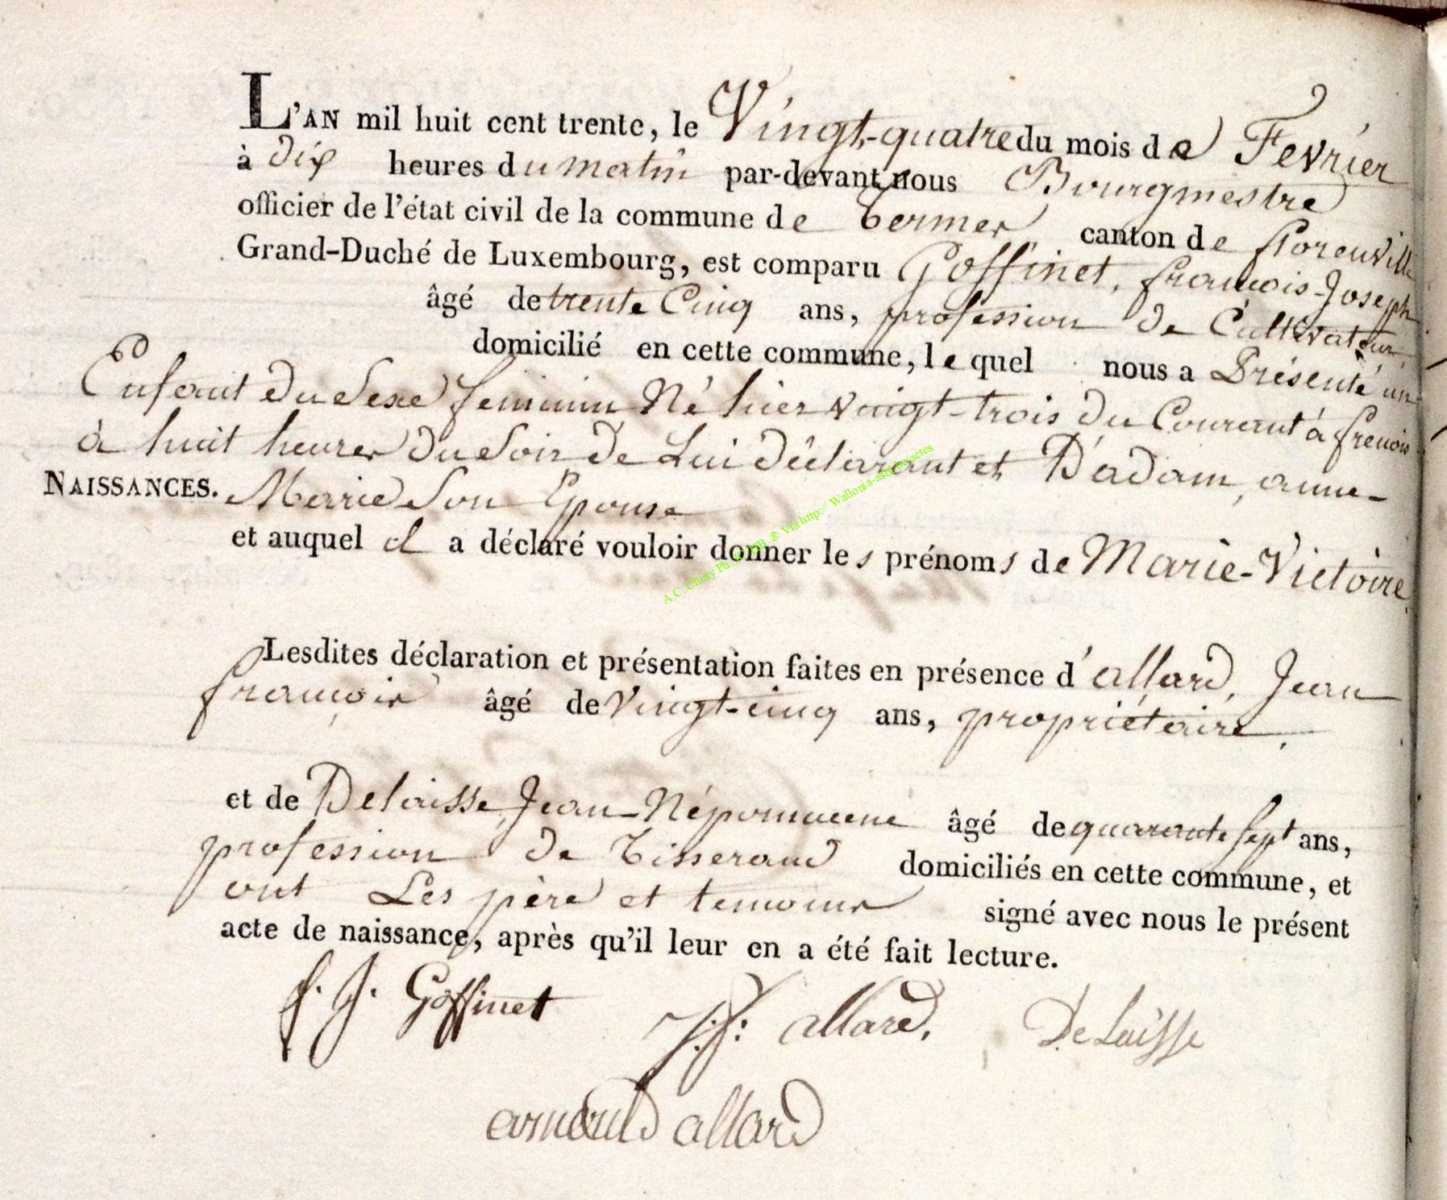 L'AN mil huit cent trente, le Vingt-quatre du mois de Fevrier
à dix heures du matin par-devant nous Bourgmestre
officier de l'état civil de la commune de Termes canton de florenville
Grand-Duché de Luxembourg, est comparu Goffinet, françois-Joseph
âgé de trente Cinq ans, profession de Cultivateur
domicilié en cette commune, lequel nous a Présenté un
Enfant du Sexe feminin Né hier vingt-trois du Courant à frenois
à huit heures du Soir de Lui déclarant et D'adam, anne-
NAISSANCES. Marie Son Epouse
et auquel il a déclaré vouloir donner les prénoms de Marie-Victoire.
Lesdites déclaration et présentation faites en présence d'allard, Jean
françois âgé de Vingt-cinq ans, propriétaire.
et de Delaisse, Jean-Népomucene âgé de quarante sept ans,
profession de Tisserand domiciliés en cette commune, et
ont Les père et temoins signé avec nous le présent
acte de naissance, après qu'il leur en a été fait lecture.
f. J. Goffinet J: f: allard. DeLaisse
arnould allard